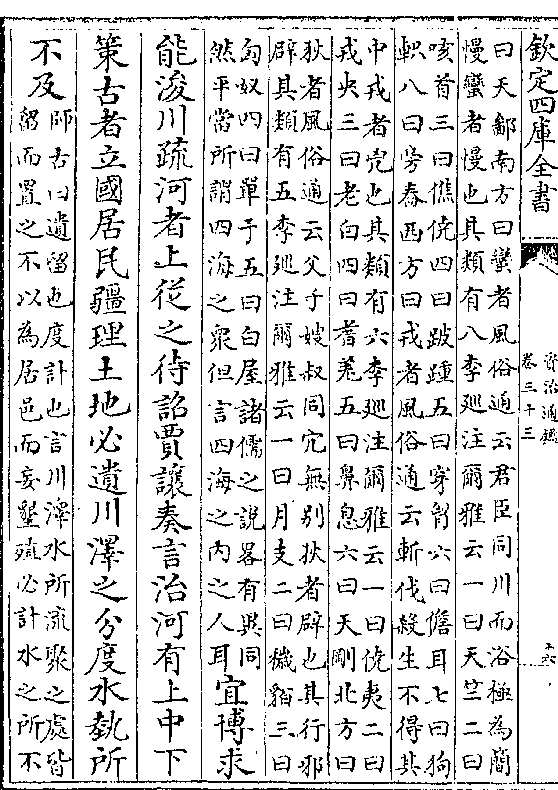 欽定四庫全書
資治通鑑
卷三十三
十六
曰天鄙南方曰蠻者風俗通云君臣同川而浴極為簡
慢蠻者慢也其類有八李廵注爾雅云一曰天竺二曰
咳首三曰僬僥四曰跛踵五曰穿胷六曰儋耳七曰狗
軹八曰旁舂西方曰戎者風俗通云斬伐殺生不得其
中戎者兇也其類有六李廵注爾雅云一曰僥夷二曰
戎央三曰老白四曰耆羌五曰鼻息六曰天剛北方曰
狄者風俗通云父子嫂叔同穴無别狄者辟也其行邪
辟其類有五李廵注爾雅云一曰月支二曰穢貊三曰
匈奴四曰單于五曰白屋諸儒之說畧有異同
然平當所謂四海之衆但言四海之内之人耳
宜博求
能浚川疏河者上從之待詔賈讓奏言治河有上中下
策古者立國居民疆理土地必遺川澤之分度水埶所
不及
師古曰遺留也度計也言川澤水所流聚之處皆
留而置之不以為居邑而妄墾殖必計水之所不